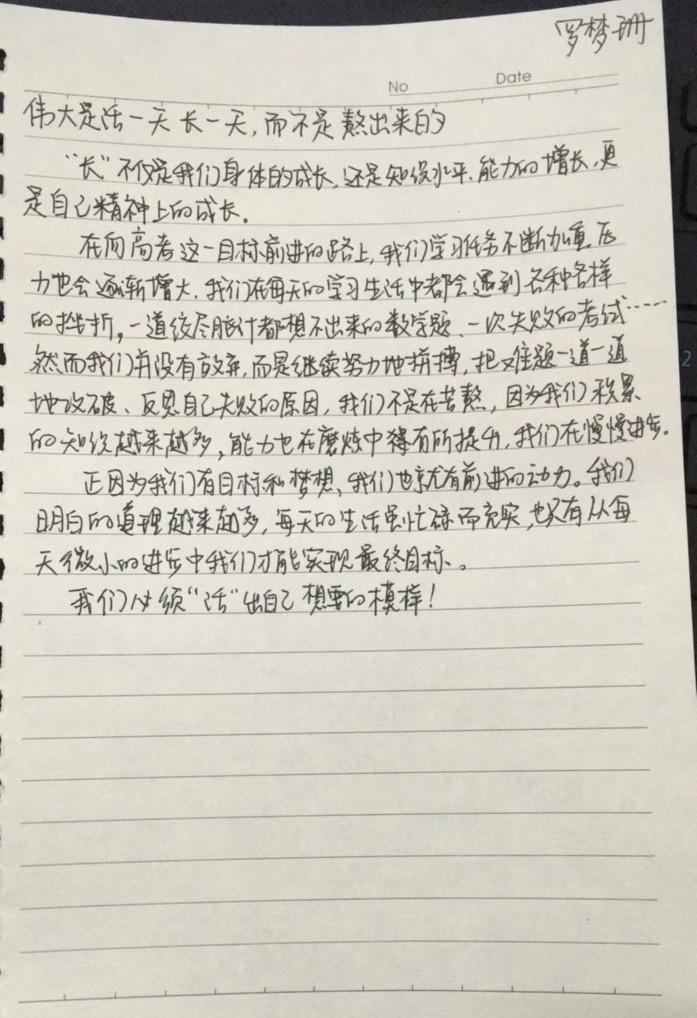 罗梦珊
No
Date
伟大是活一天长一天,而不是熬出来的
"长"不仅是我们身体的成长,还是知识水平、能力的增长,更
是自己精神上的成长。
在向高考这一目标前进的路上,我们学习任务不断加重,压
力也会逐渐增大,我们在每天的学习生活中都会遇到各种各样
的挫折,一道绞尽脑汁都想不出来的数学题、一次失败的考试……
然而我们并没有放弃,而是继续努力地拼搏,把难题一道一道
地攻破、反思自己失败的原因,我们不是在苦熬,因为我们积累
的知识越来越多,能力也在磨炼中得有所提升,我们在慢慢进步。
正因为我们有目标和梦想,我们也就有前进的动力。我们
明白的道理越来越多,每天的生活虽忙碌而充实,也只有从每
天微小的进步中我们才能实现最终目标。
我们必须"活"出自己想要的模样!
2